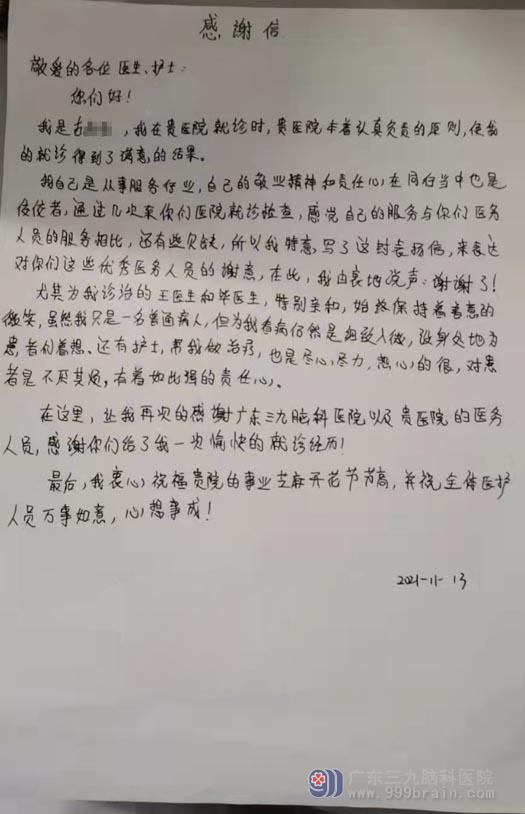 感谢信
敬爱的各位医生、护士:
您们好!
我是古 ,我在贵医院就诊时,贵医院本着认真负责的原则,使我
的就诊得到了满意的结果。
我自己是从事服务行业,自己的敬业精神和责任心在同行当中也是
佼佼者,通过几次来你们医院就诊检查,感觉自己的服务与你们医务
人员的服务相比,还有些欠缺,所以我特意写了这封表扬信,来表达
对你们这些优秀医务人员的谢意,在此,我由衷地说声:谢谢了!
尤其为我诊治的王医生和毕医生,特别亲和,始终保持着善意的
微笑,虽然我只是一名普通病人,但为我看病仍然是细致入微,设身处地为
患者们着想、还有护士,帮我做治疗,也是尽心尽力,热心的很,对患
者是不厌其烦,有着如此强的责任心。
在这里,让我再次的感谢广东三九脑科医院以及贵医院的医务
人员,感谢你们给了我一次愉快的就诊经历!
最后,我衷心祝福贵院的事业芝麻开花节节高,并祝全体医护
人员万事如意,心想事成!
2021-11-13
广东三九脑科医院
www.999brain.com